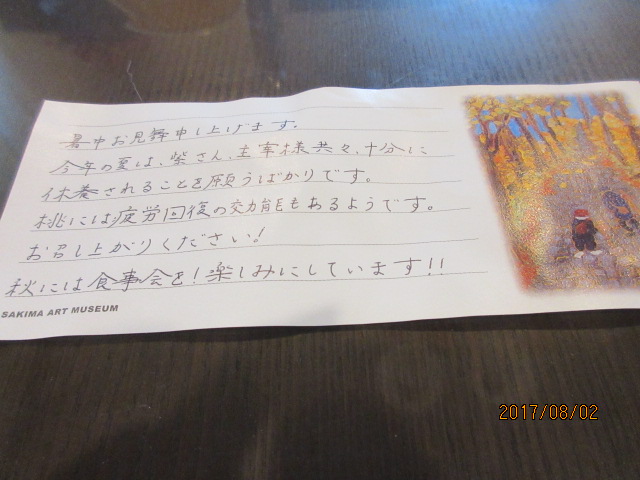 暑中お見舞申し上げます。
今年の夏は、柴さん、主宰様共々、十分に
休養されることを願うばかりです。
桃には疲労回復の効能もあるようです。
お召し上がりください!
秋には食事会を!楽しみにしています!!
SAKIMA ART MUSEUM
2017/08/02